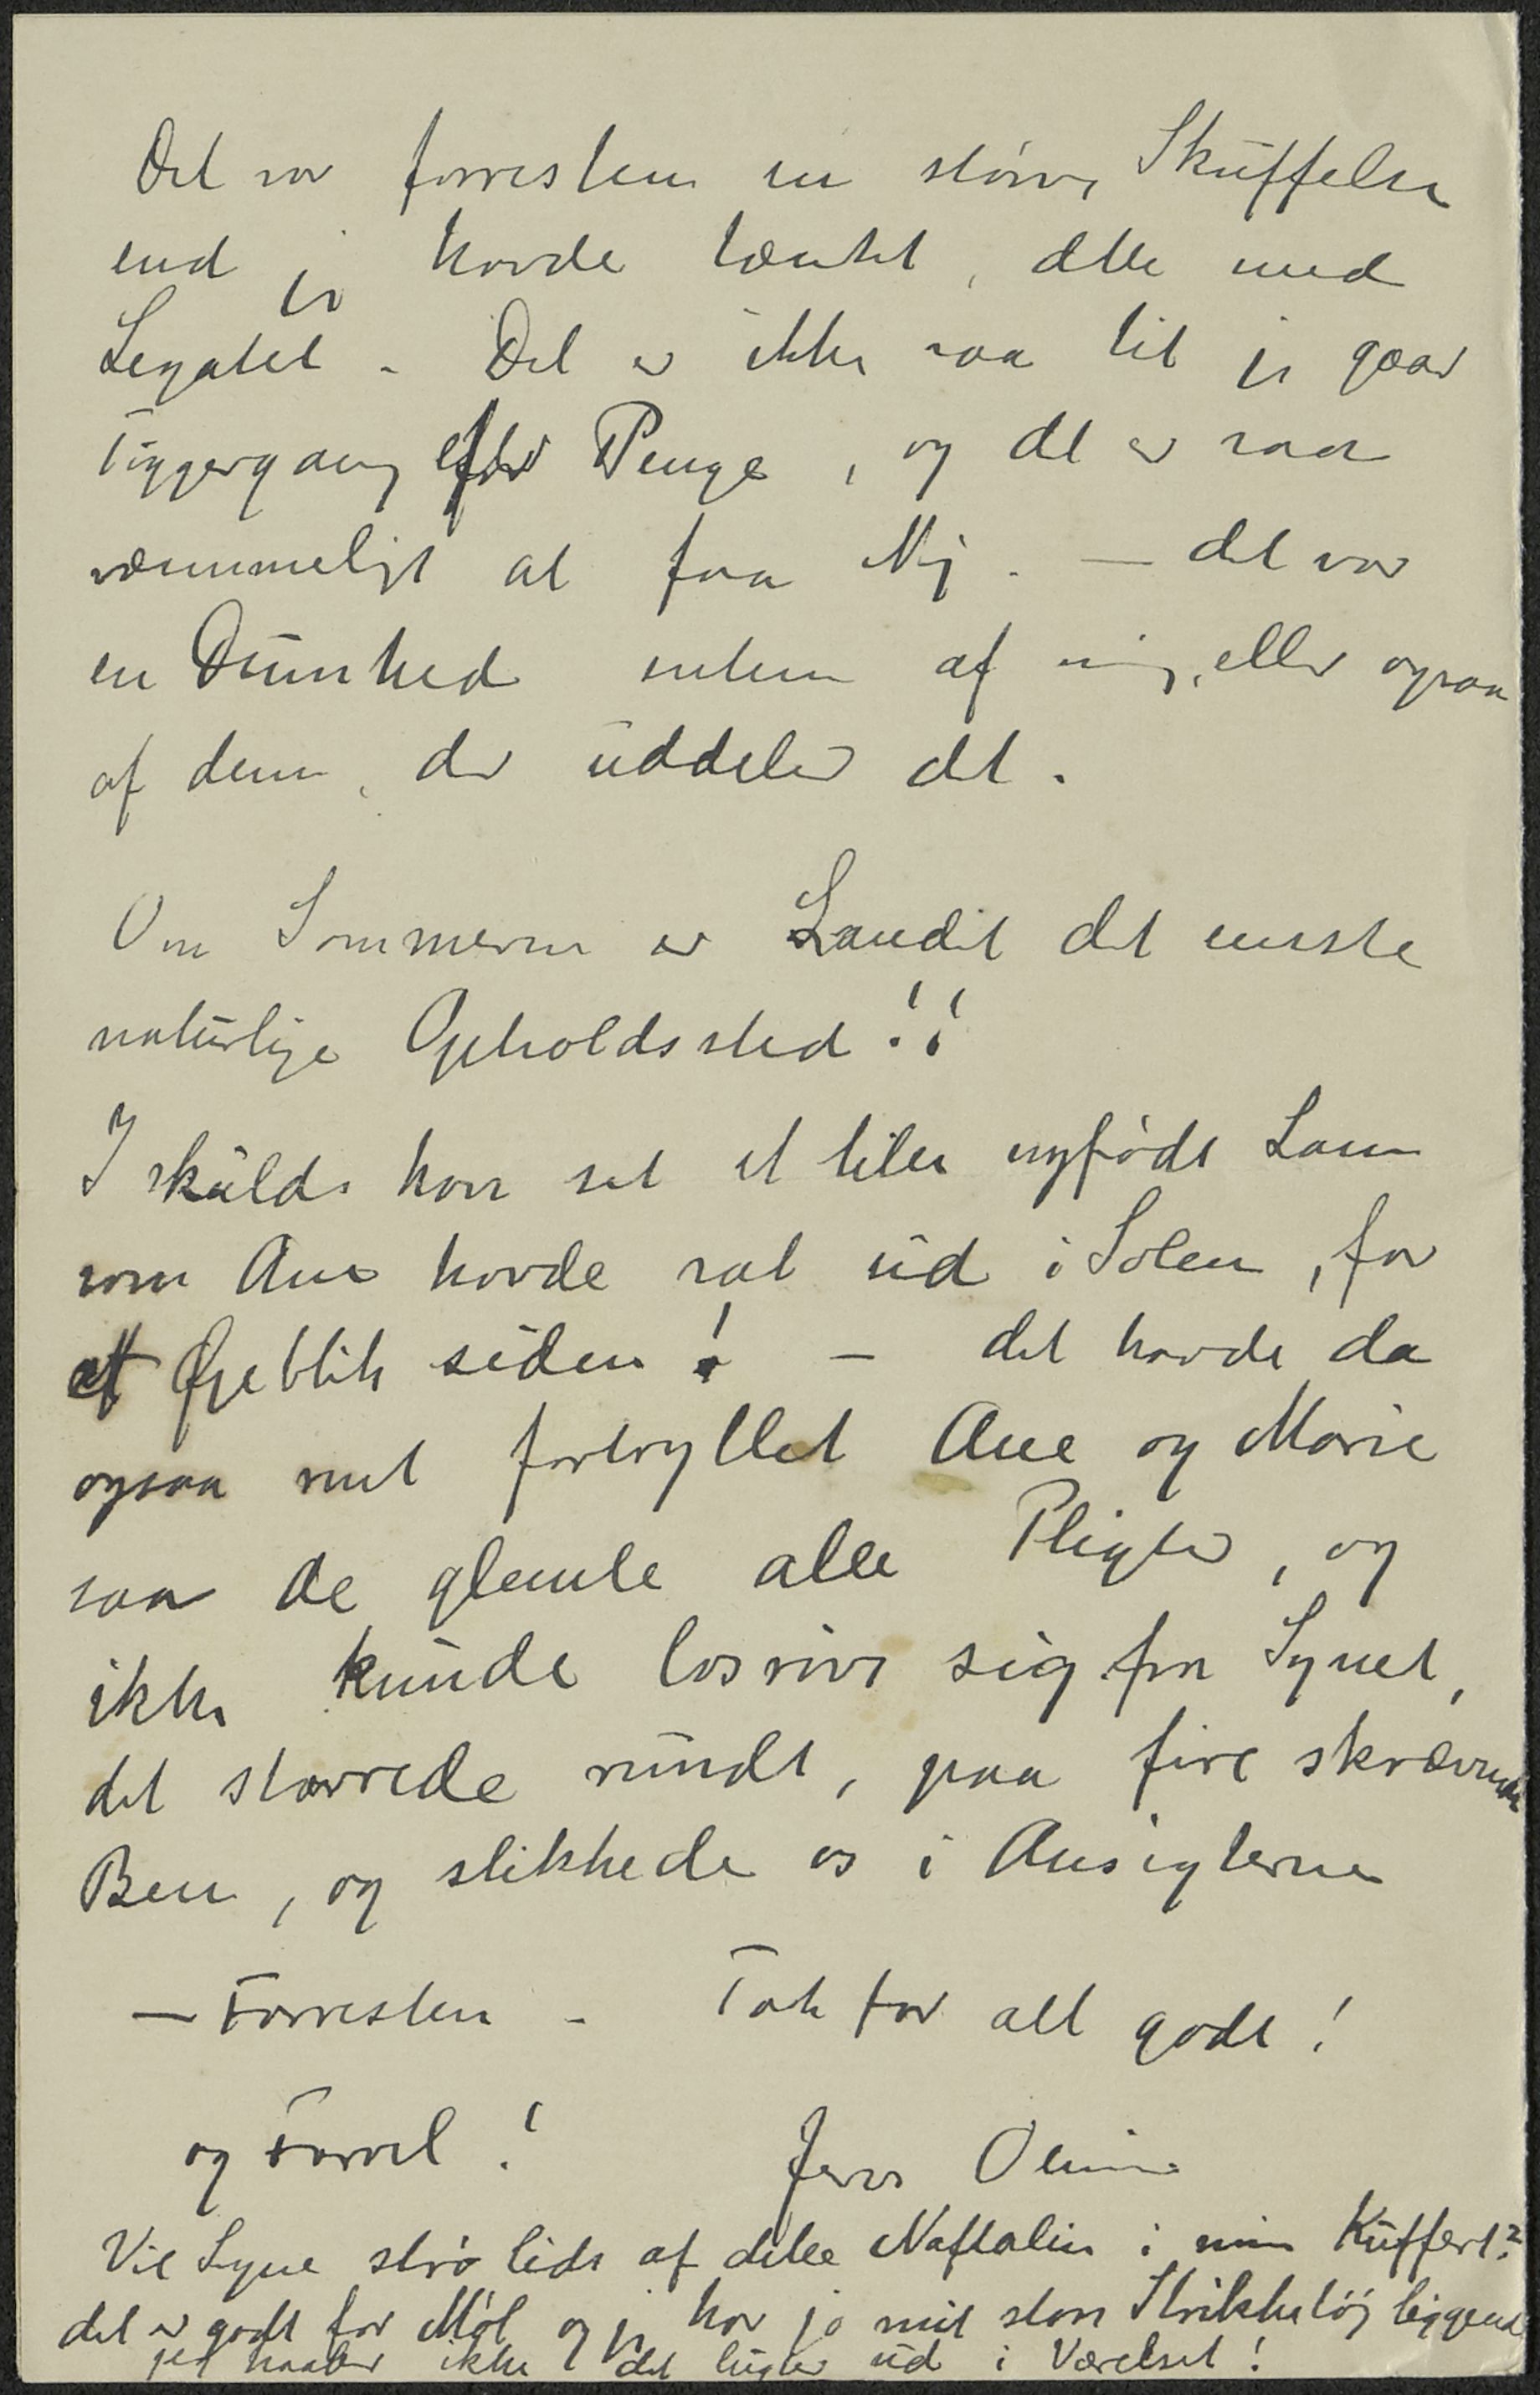 Det var forresten en större Skuffelse
end jeg havde tænkt, dette med
Legatet - Det er ikke saa tit jeg gaar
Tiggergang efter Penge, og det er saa
væmmeligt at faa Nej. — det var
en Dumhed enten af mig, eller ogsaa
af dem, der uddeler det.
Om Sommeren er Landet det eneste
naturlige Opholdssted!!
I skulde have set et lille nyfödt Lam
som Ane havde sat ud i Solen, for
et Øjeblik siden! - det havde da
ogsaa rent fortryllet Ane og Marie
saa de glemte alle Pligter, og
ikke kunde losrive sig fra Synet,
det stavrede rundt, paa fire skrævende
Ben, og slikkede os i Ansigterne
— Forresten - Tak for alt godt!
og Farvel! Jeres
Vil Syne strö lidt af dette Naftalin i min Kuffert?
det er godt for Møl og jeg har jo mit store Strikketöj liggende
jeg haaber ikke det lugter ud i Værelset!